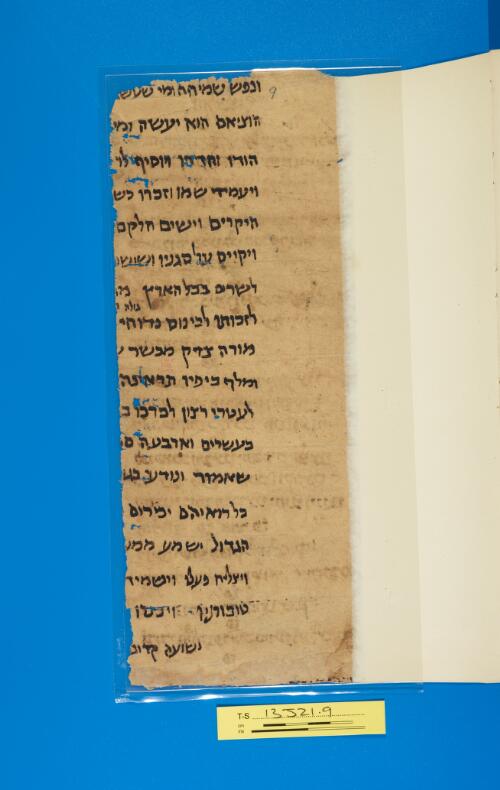 ונפש שמיהה ומי שעש
9
הוציאם הוא יעשה ומי
הודו והדרו ויוסיף לו
ויעמיד שמו וזכרו כש
היקרים וישים חלקם
ויקוים על סגנו
לשרים בכל הארץ
גולה
לזכותו לכינוס נדוחי
מורה צדק מבשר
ומלך ביפיו תראינה
לעטרו רצון לברכו ב
בעשרים וארבעה
שאמור ונודע בג
כל רואיהם יכירום
הגדול ישמע ממ
ויצליח פעלו וישמיד
נשועה קרוב
T-S 13J21.9